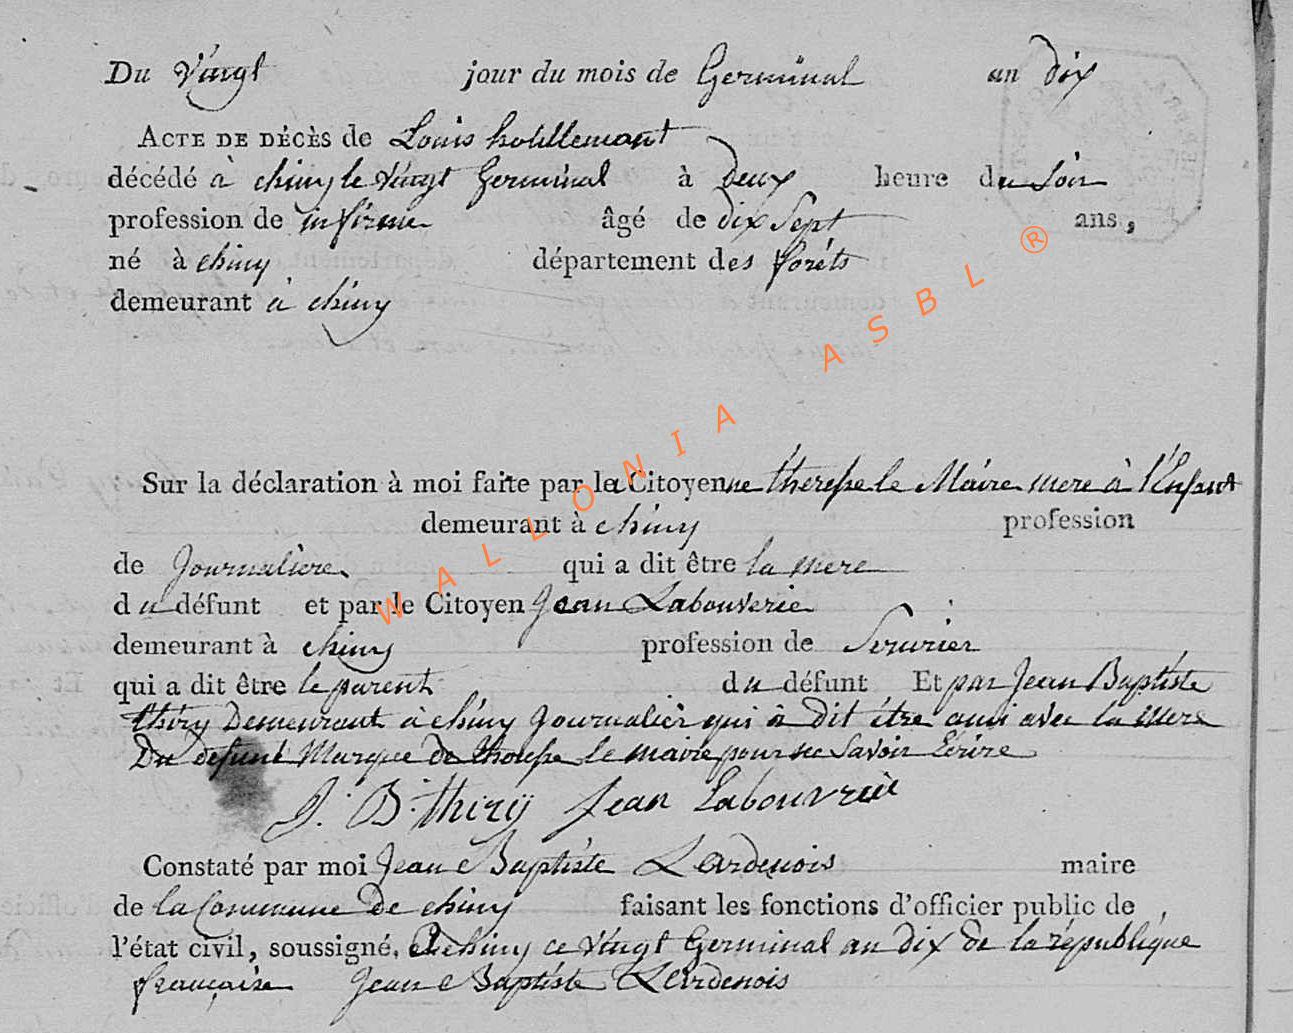 Du Vingt jour du mois de Germinal an dix
ACTE DE DÉCÈS de Louis hotillemant
décédé à chiny le Vingt Germinal à Deux heure du Soir
profession de infirme âgé de dix Sept ans,
né à chiny département des forêts
demeurant à chiny
Sur la déclaration à moi faite par la Citoyenne therese le Maire mere à l'Enfant
demeurant à chiny profession
de Journaliere qui a dit être la mere
du défunt et par le Citoyen Jean Labouverie
demeurant à chiny profession de Serurier
qui a dit être le parent du défunt Et par Jean Baptiste
thiry Demeurant à chiny Journalier qui à Dit étre ami avec la mere
Du defunt Marque de therese le maire pour ne Savoir Ecrire
J. B. thiry Jean Labouvrie
Constaté par moi Jean Baptiste Lardenois maire
de la Commune De chiny faisant les fonctions d'officier public de
l'état civil, soussigné. A chiny ce Vingt Germinal an Dix de la république
française Jean Baptiste Lardenois
WALLONIA ASBL ®